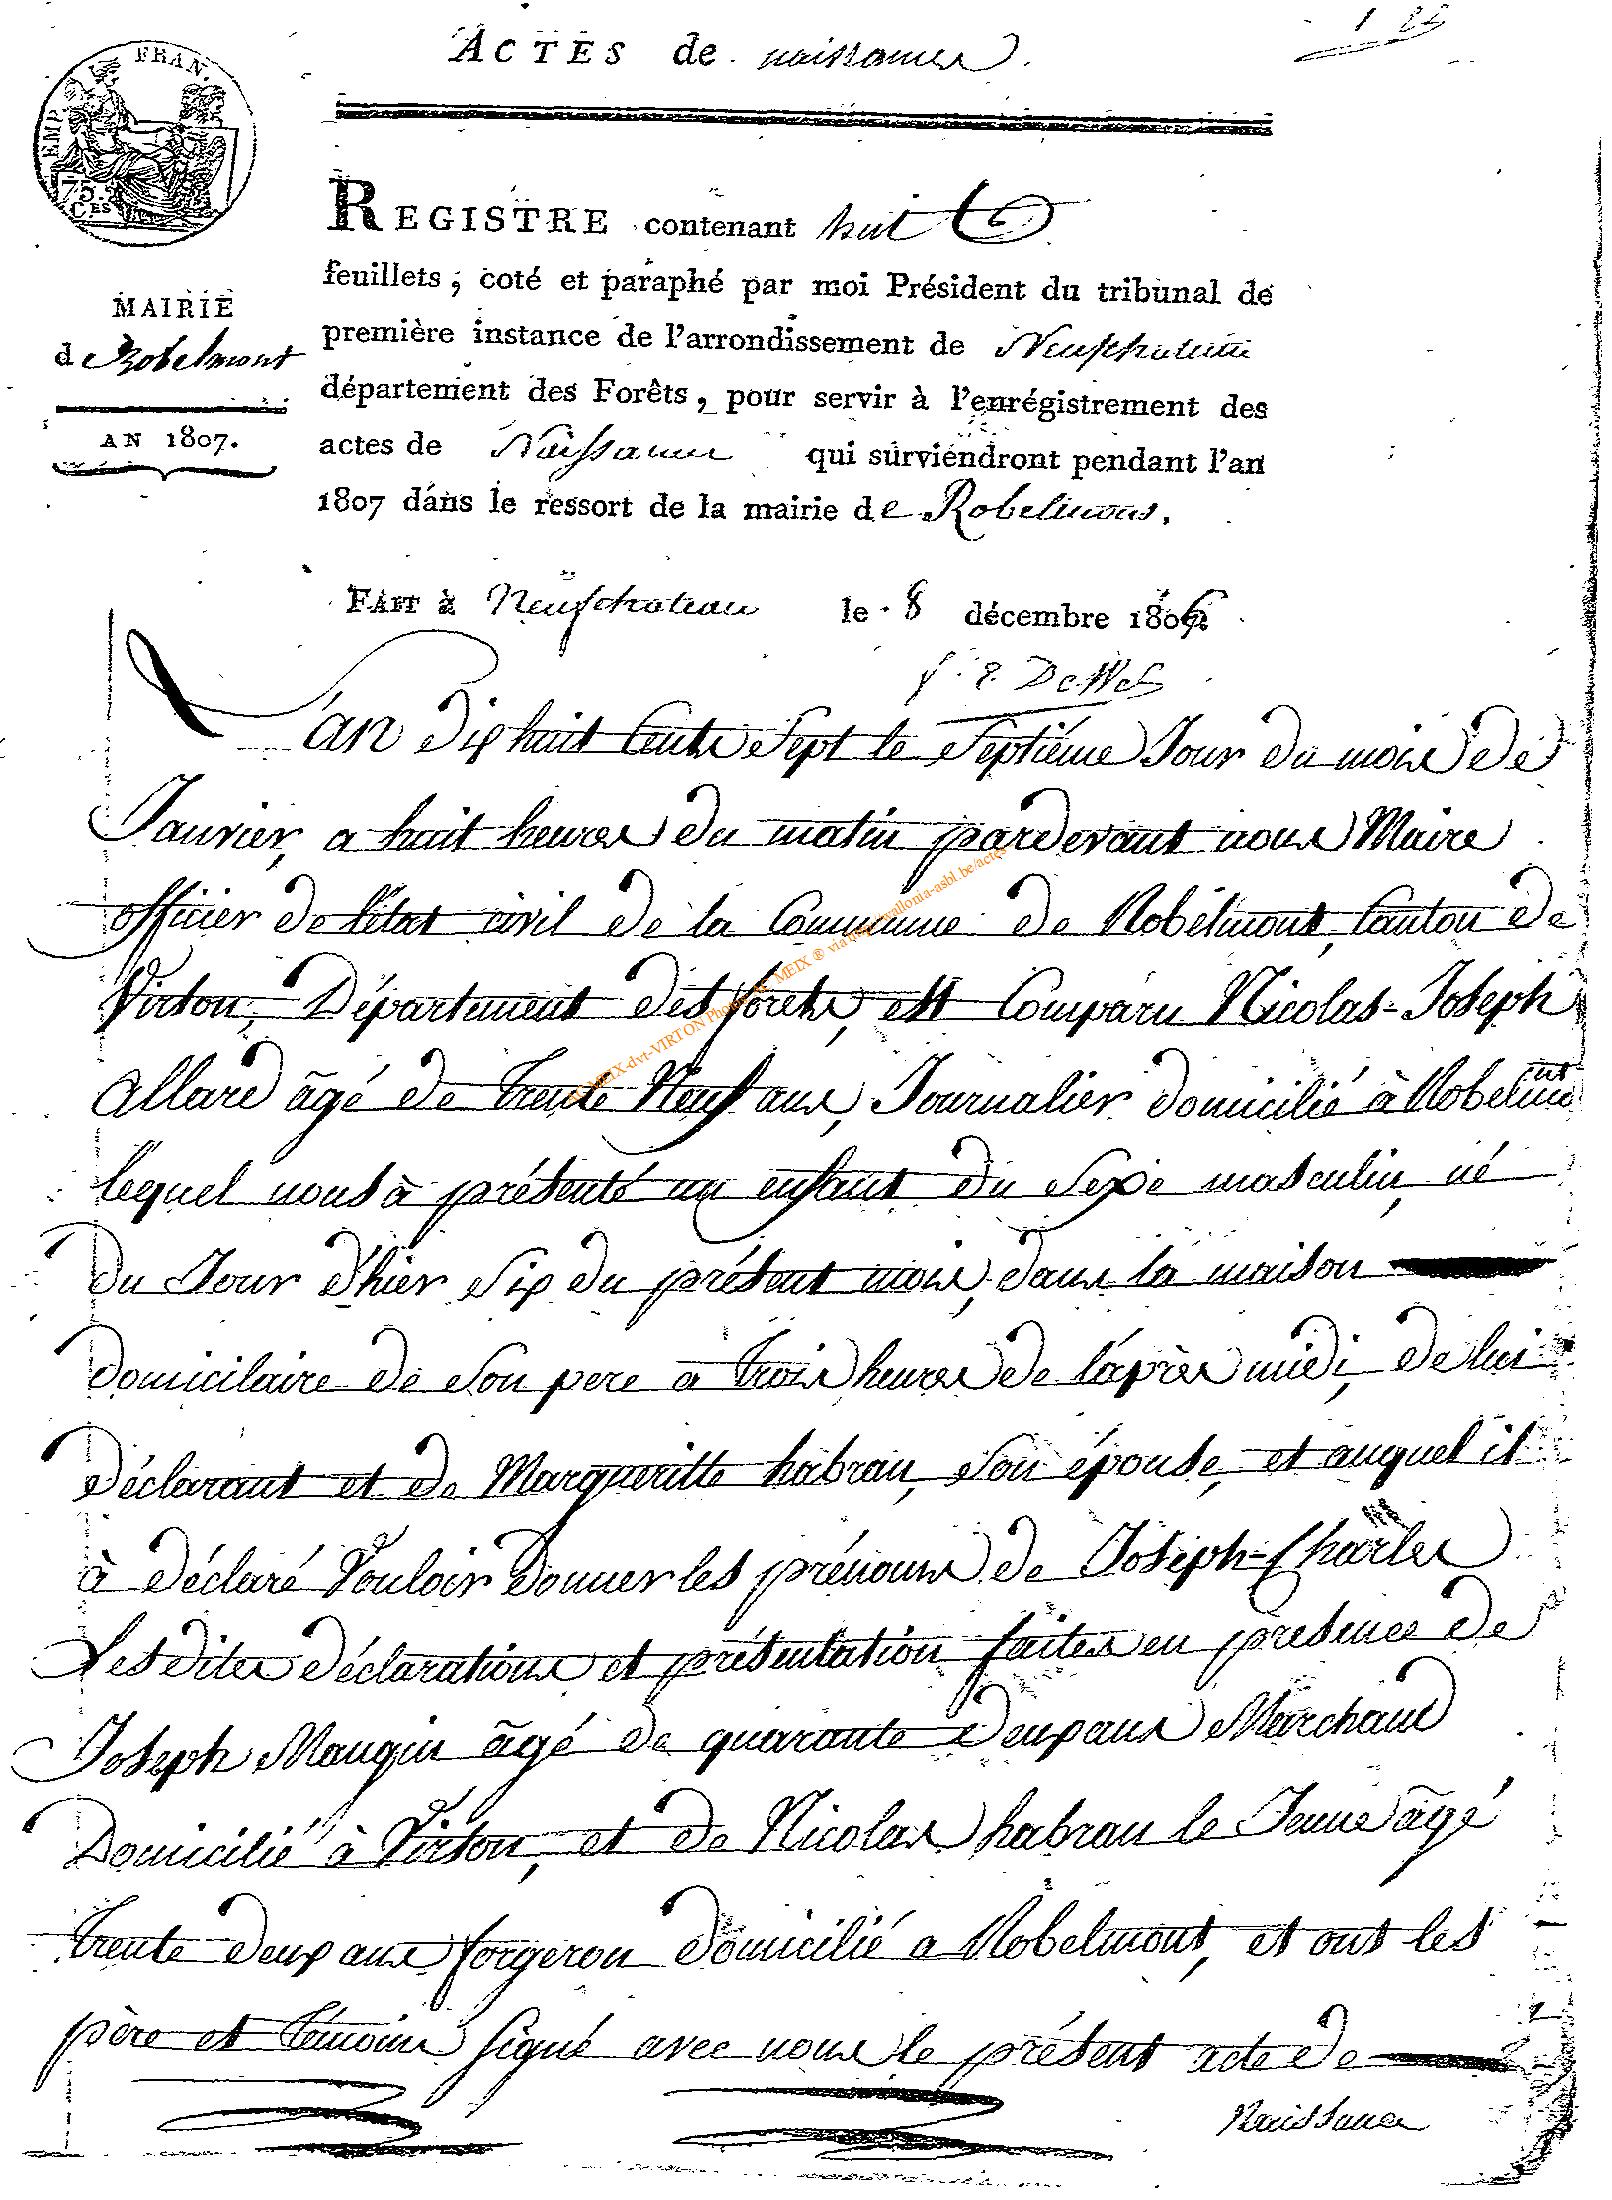 1
ACTES de naissances
EMP. FRAN.
75.
CES
REGISTRE contenant huit
feuillets, coté et paraphé par moi Président du tribunal de
MAIRIE
première instance de l'arrondissement de Neufchateau
de Robelmont
département des Forêts, pour servir à l'enrégistrement des
AN 1807.
actes de Naissance qui surviendront pendant l'an
1807 dans le ressort de la mairie de Robelmont.
FAIT à Neufchateau le 8 décembre 1806
L'an dix huit Cents Sept le Septiéme Jour du mois de
Janvier, a huit heures du matin pardevant nous Maire
officier de l'état civil de la Commune de Robélmont, Canton de
Virton, Département des forets, est Comparu Nicolas-Joseph
allard âgé de trente Neuf ans, Journalier domicilié à Robelmont
lequel nous à présenté un enfant du Sexe masculin, né
du Jour d'hier Six du présent mois, dans la maison
domicilaire de Son pere a trois heures de l'après midi, de lui
déclarant et de Margueritte habran, Son épouse, et auquel il
à déclaré Vouloir donner les prénoms de Joseph-Charles
Les dites déclarations et présentation faites en présence de
Joseph Mangin âgé de quarante deux ans Marchand
Domicilié à Virton, et de Nicolas habran le Jeune âgé
trente deux ans forgeron domicilié a Robelmont, et ont les
père et témoins signé avec nous le présent acte de
Naissance
© MEIX-dvt-VIRTON MEIX ® via wallonia-asbl.be/actes